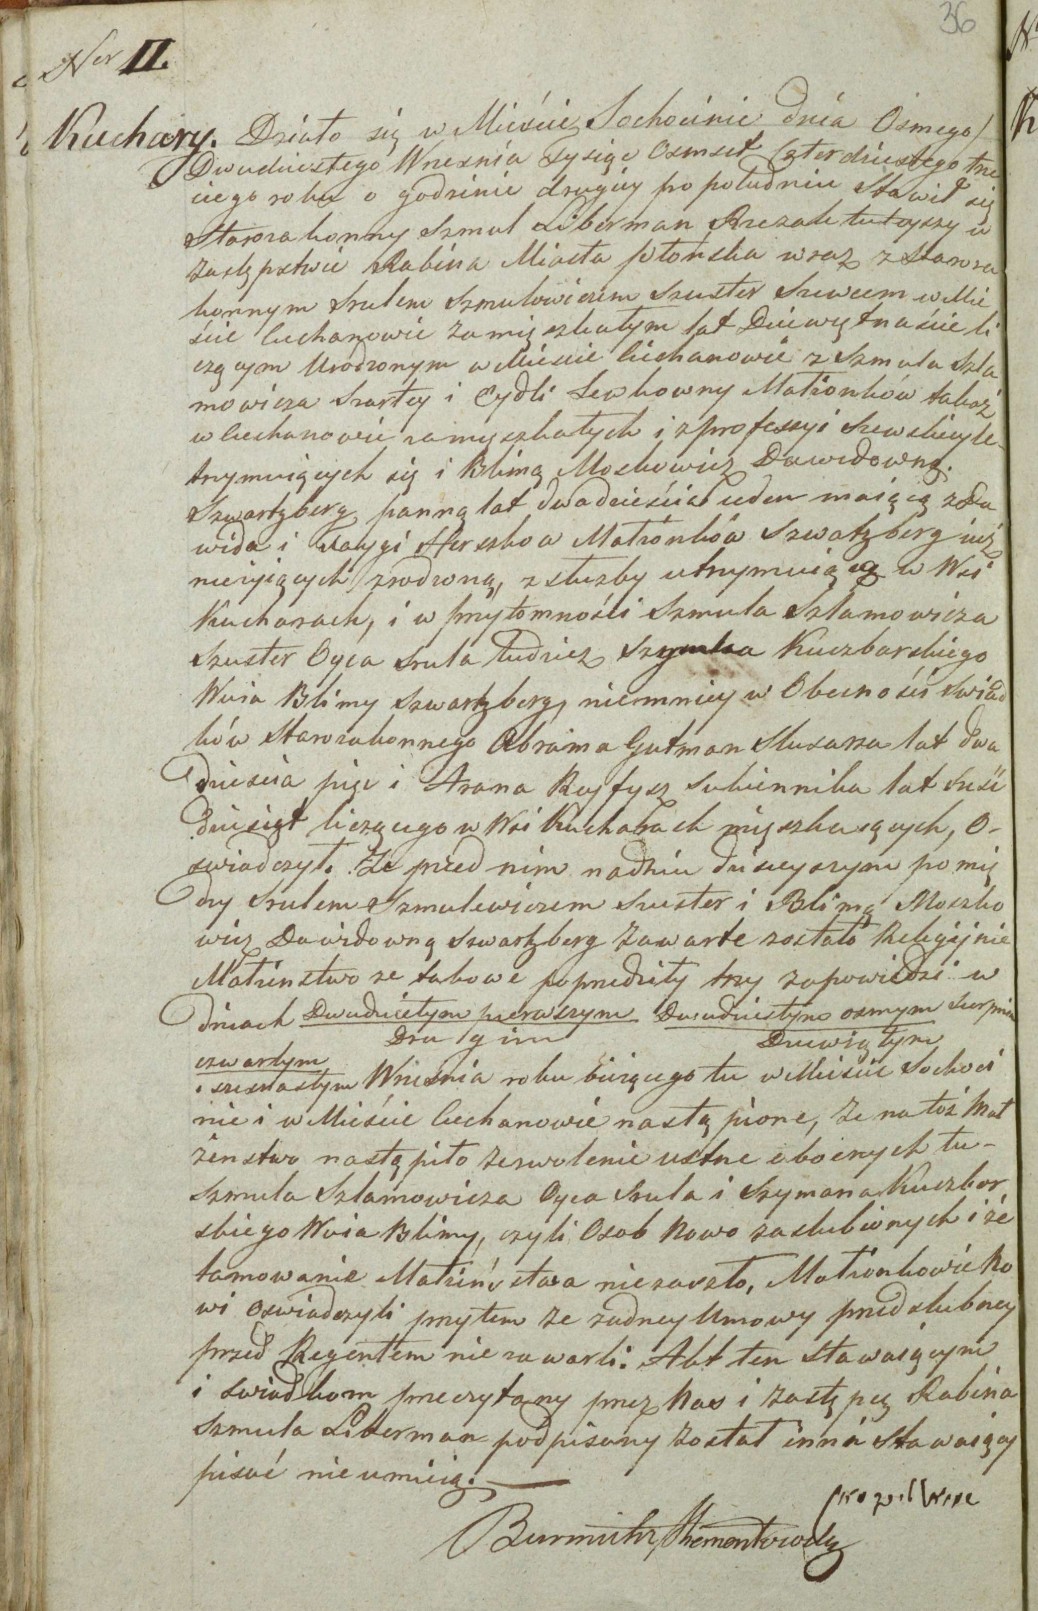 36
Ner II.
Kuchary. Działo się w Mieście Sochocinie dnia Osmego/
Dwudziestego Września tysiąc Osmset Czterdziestego trze
ciego roku o godzinie drugiey po południu Stawił się
Starozakonny Szmul Liberman Rzezak tutayszy w
zastępstwie Rabina Miasta Płońska wraz z Staroza
konnym Srulem Szmulowiczem Szuster Szewcem w Mie
ście Ciechanowie zamięszkałym lat Dziewiętnaście li
czącym Urodzonym w Mieście Ciechanowie z Szmula Szla
mowicza Szustey i Cydli Lewkowny Małżonków takoż
w Ciechanowie zamięszkałych i z professyi Szewskiey u-
trzymuiących się i Blimą Moskowicz Dawidowną
Szwartzberg panną lat dwadzieścia ieden maiącą z Da
wida i Faygi Herszkow Małżonków Szwatzberg iuż
nieżyiących zrodzoną, z służby utrzymuiącą w Wsi
Kucharach, i w przytomności Szmula Szlamowicza
Szuster Oyca Srula tudzież Szymka Kuczborskiego
Wuia Blimy Szwartzberg, niemniey w Obecności Swiad
ków Starozakonnego Abrama Gutman Slusarza lat dwa
dzieścia pięć i Arona Rayfysz Sukiennika lat sześć
dziesiąt liczącego w Wsi Kucharach mięszkaiących, O-
swiadczył. Że przed nim na dniu dzisieyszym pomię
dzy Srulem Szmulewiczem Szuster i Blimą Moszko
wicz Dawidowną Szwartzberg zawarte zostało Religijnie
Małżenstwo że takowe poprzedziły trzy zapowiedzi w
dniach Dwudziestym pierwszym Dwudziestym osmym Sierpnia
Drugim Dziewiątym
czwartym
i szesnastym Września roku bieżącego tu w Mieście Sochoci
nie i w Mieście Ciechanowie nastąpione, Że na toż Mał
żenstwo nastąpiło zezwolenie ustne obocnych tu-
Szmula Szlamowicza Oyca Srula i Szymana Kuczbor
skiego Wuia Blimy, czyli Osob Nowo zaslubionych i że
tamowanie Małżeństwa nie zaszło, Małżonkowie No
wi oswiadczyli przytem że żadney Umowy przedslubney
przed Regentem nie zawarli. Akt ten stawaiącym
i swiadkom przeczytany przez Nas i zastępcę Rabina
Szmula Liberman podpisany został inni Stawaiący
pisać nie umieią.
Burmistrz